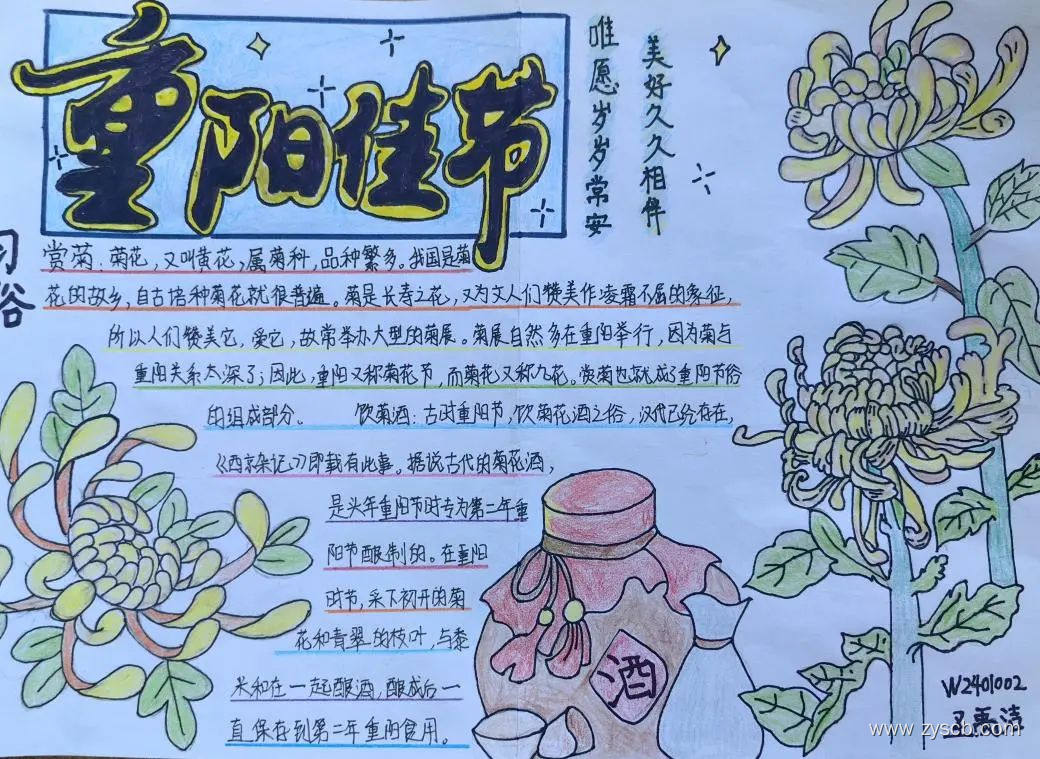 重阳佳节
唯愿岁岁常安
美好久久相伴
习俗
赏菊：菊花，又叫黄花，属菊科，品种繁多。我国是菊
花的故乡，自古培种菊花就很普遍。菊是长寿之花，又为文人们赞美作凌霜不屈的象征，
所以人们赞美它，爱它，故常举办大型的菊展。菊展自然多在重阳举行，因为菊与
重阳关系太深了；因此，重阳又称菊花节，而菊花又称九花。赏菊也就成了重阳节俗
的组成部分。 饮菊酒：古时重阳节，饮菊花酒之俗，汉代已经存在，
《西京杂记》即载有此事。据说古代的菊花酒，
是头年重阳节时专为第二年重
阳节酿制的。在重阳
时节，采下初开的菊
花和青翠的枝叶，与黍
米和在一起酿酒，酿成后一
直保存到第二年重阳食用。
酒
W2401002
www.zyscb.com